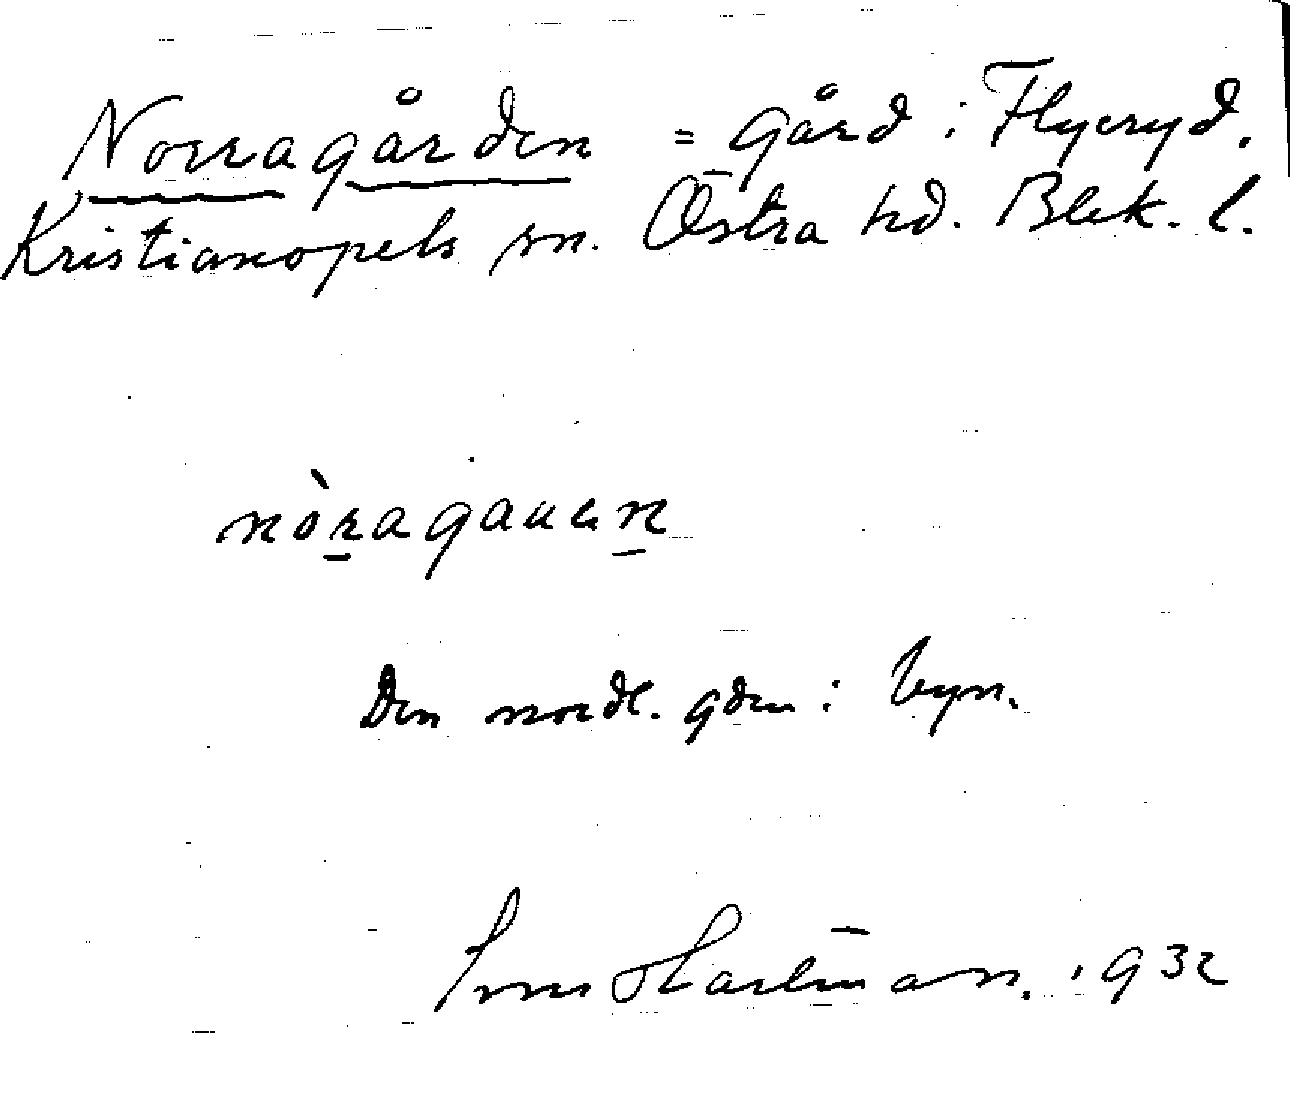 Norragården = gård i Flyeryd.
Kristianopels sn. Östra hd. Blek. l.
nòragauen
Den nordl. gden i byn.
Hartman. 1932